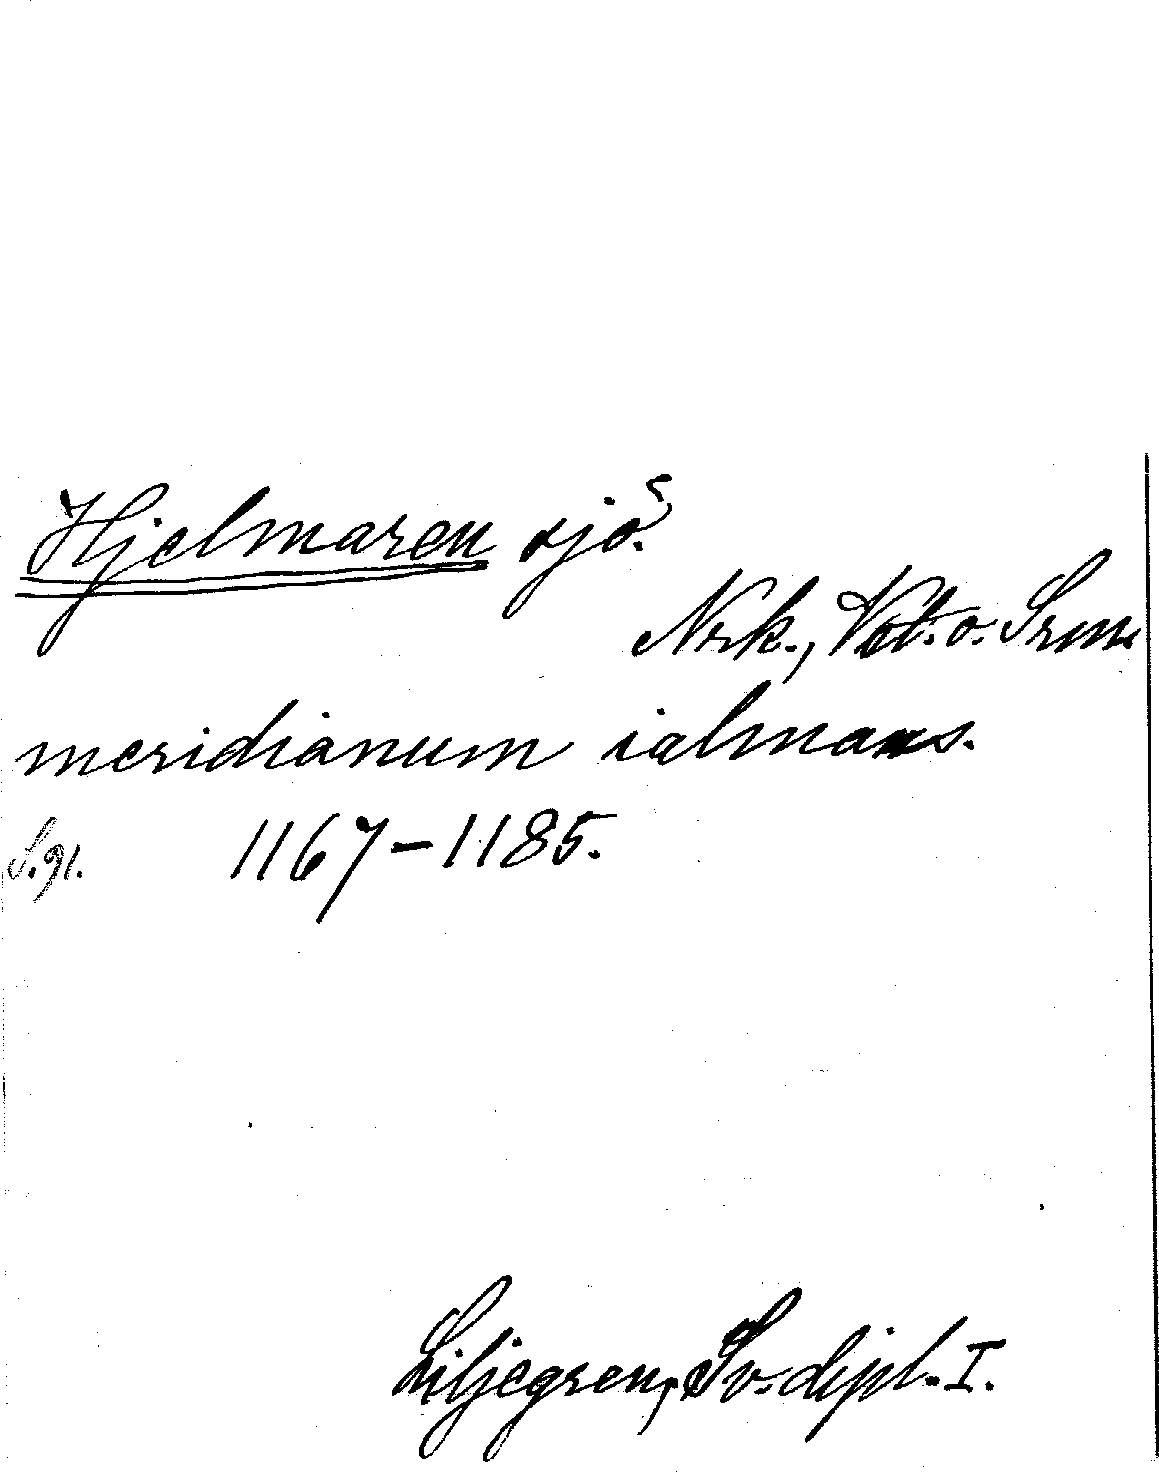 Hjelmaren sjö.
Nrk., Vstm. o. Srm.
meridianum ialmans.
S. 91. 1167-1185.
Liljegren, Sv. dipl. I.